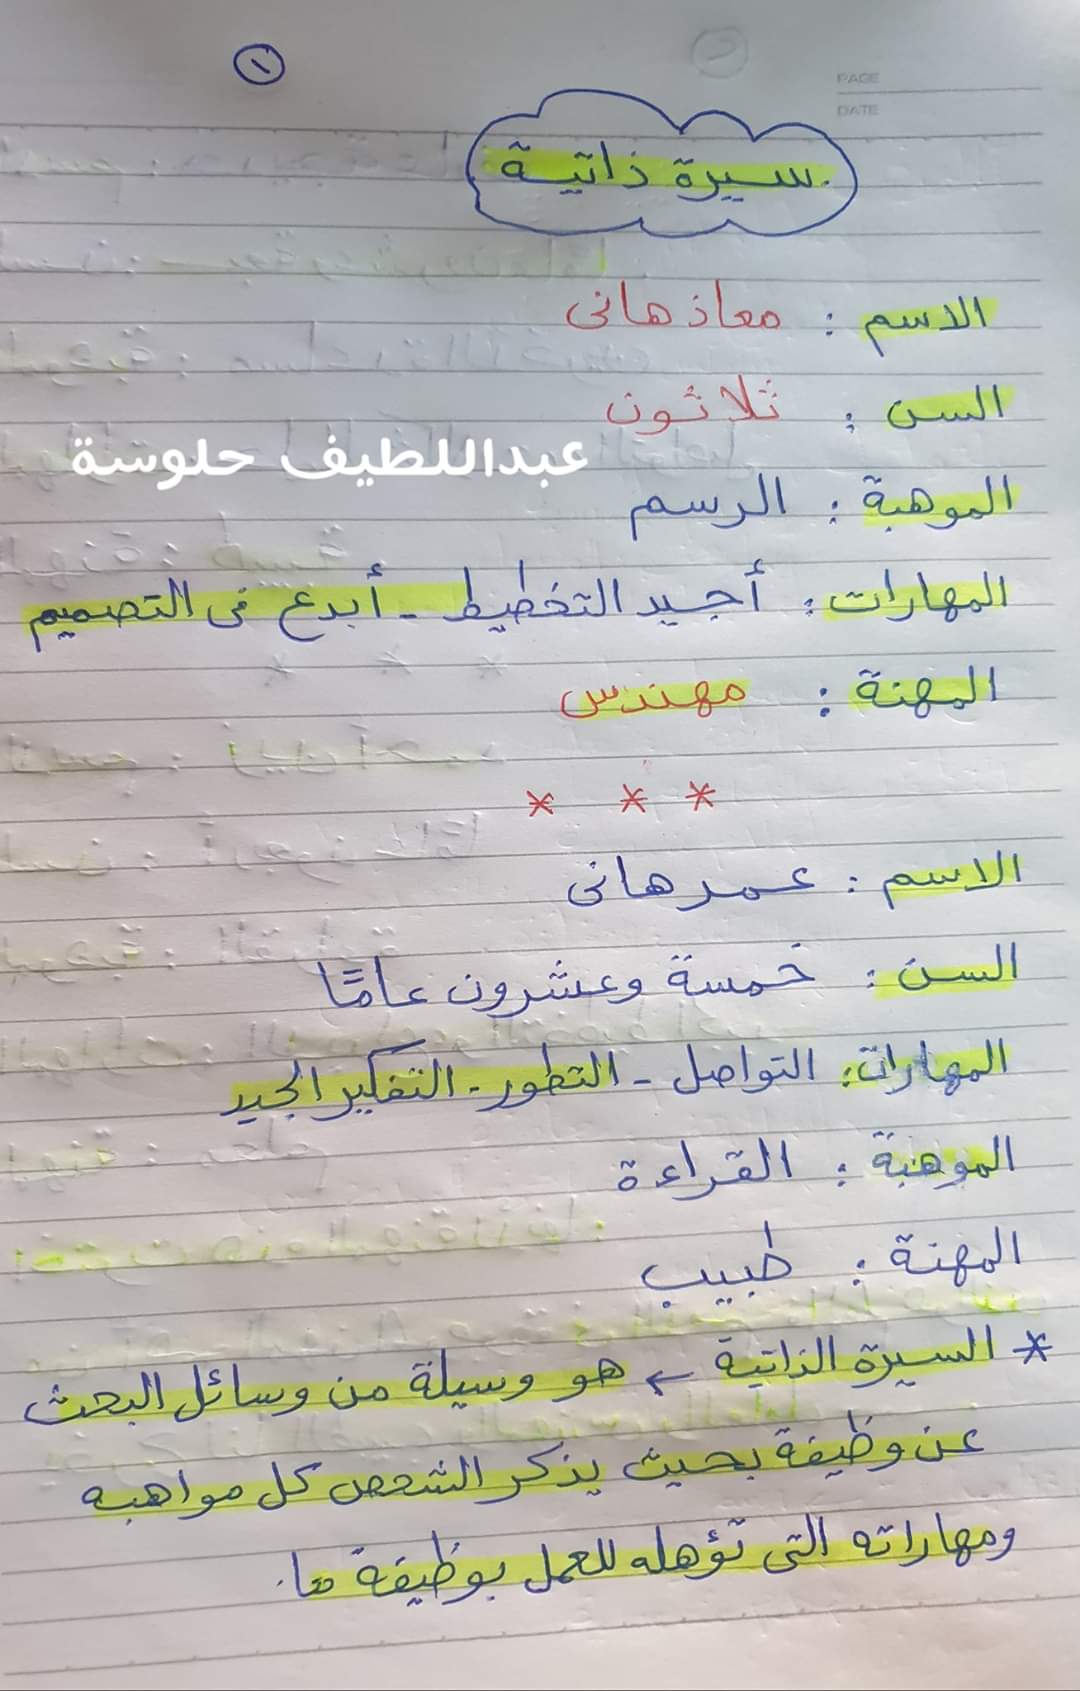 ١
PAGE
DATE
سيرة ذاتية
الاسم : معاذ هانى
السن : ثلاثون
عبداللطيف حلوسة
الموهبة : الرسم
المهارات : أجيد التخطيط - أبدع فى التصميم
المهنة : مهندس
* * *
الاسم : عمر هانى
السن : خمسة وعشرون عامًا
المهارات : التواصل - التطور - التفكير الجيد
الموهبة : القراءة
المهنة : طبيب
* السيرة الذاتية ← هو وسيلة من وسائل البحث
عن وظيفة بحيث يذكر الشخص كل مواهبه
ومهاراته التى تؤهله للعمل بوظيفة ما.